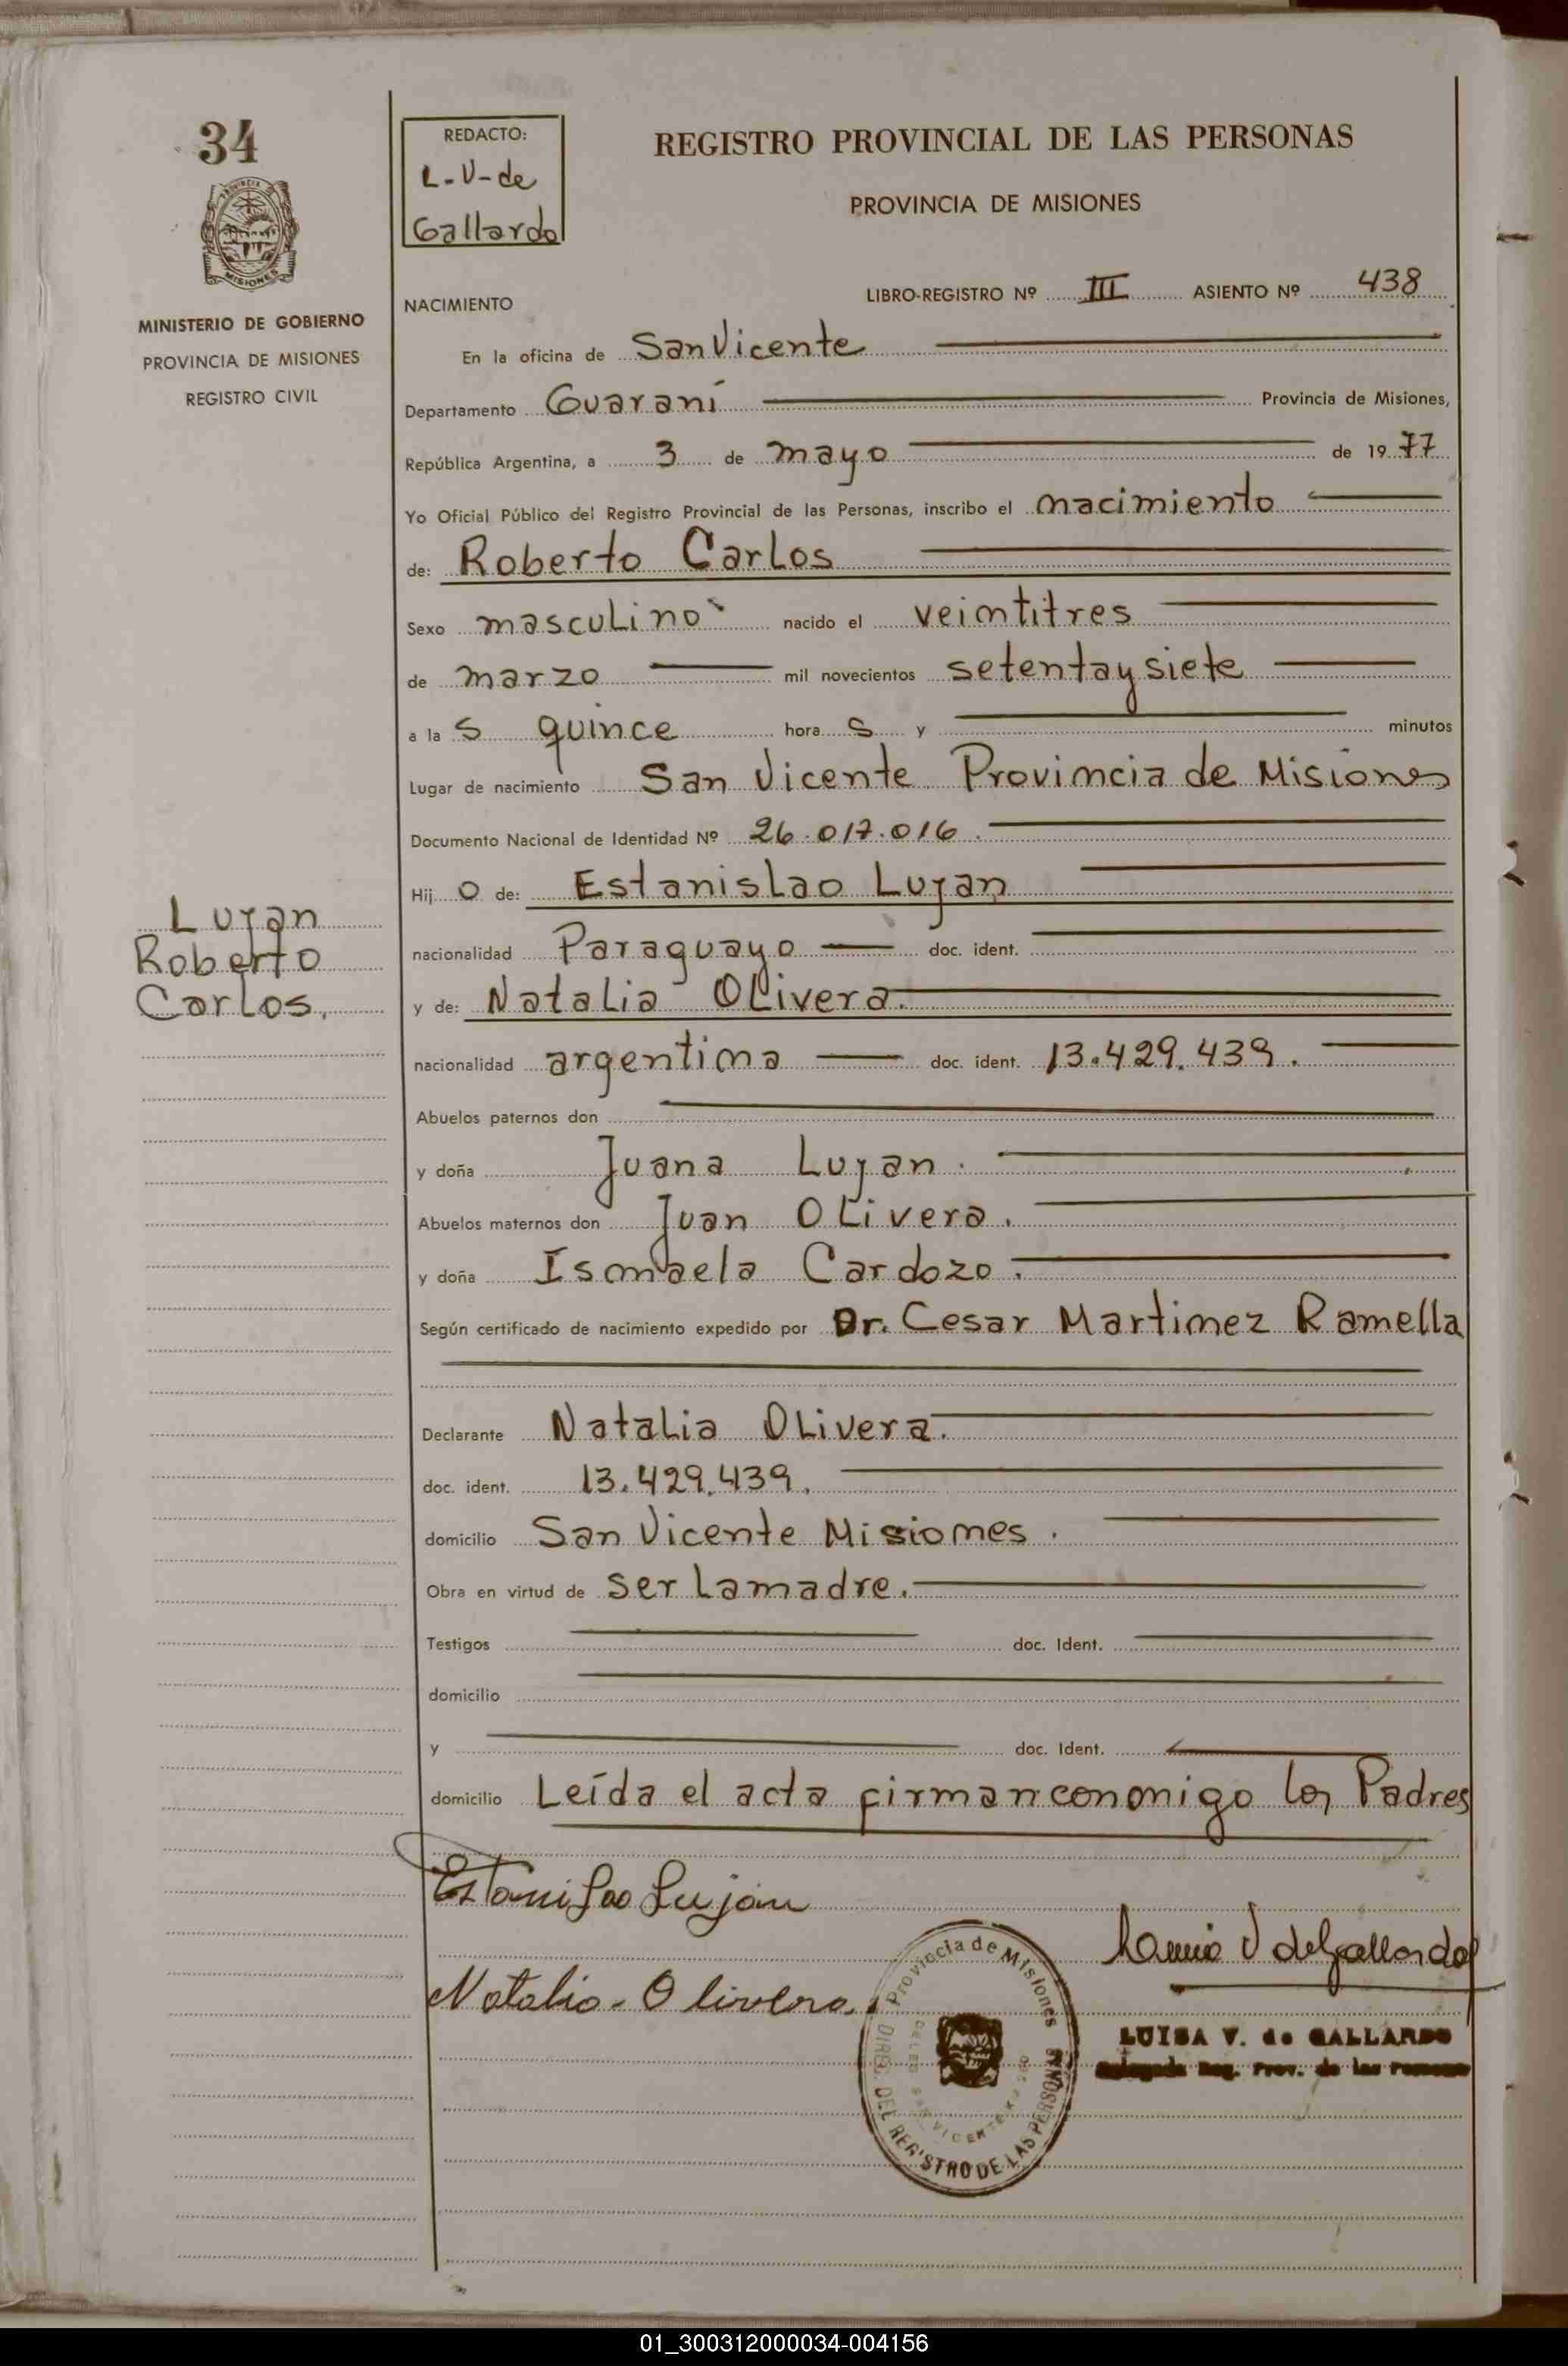 34
REDACTO:
L-V-de
Gallardo
REGISTRO PROVINCIAL DE LAS PERSONAS
PROVINCIA DE MISIONES
MISIONES
MINISTERIO DE GOBIERNO
PROVINCIA DE MISIONES
REGISTRO CIVIL
NACIMIENTO
LIBRO-REGISTRO Nº III ASIENTO Nº 438
En la oficina de San Vicente
Departamento Guaraní Provincia de Misiones,
República Argentina, a 3 de mayo de 1977
Yo Oficial Público del Registro Provincial de las Personas, inscribo el nacimiento
de: Roberto Carlos
Sexo masculino nacido el veintitres
de marzo mil novecientos setenta y siete
a las quince horas y minutos
Lugar de nacimiento San Vicente Provincia de Misiones
Documento Nacional de Identidad Nº 26.017.016.
Hijo de: Estanislao Lujan
Lujan
Roberto
Carlos.
nacionalidad Paraguayo doc. ident.
y de: Natalia Olivera.
nacionalidad argentina doc. ident. 13.429.439.
Abuelos paternos don
y doña Juana Lujan.
Abuelos maternos don Juan Olivera.
y doña Ismaela Cardozo.
Según certificado de nacimiento expedido por Dr. Cesar Martinez Ramella
Declarante Natalia Olivera.
doc. ident. 13.429.439.
domicilio San Vicente Misiones.
Obra en virtud de ser la madre.
Testigos doc. Ident.
domicilio
y doc. Ident.
domicilio Leída el acta firman conmigo los Padres
Estanislao Lujan
Natalia - Olivera
V de Gallardo
Provincia de Misiones
DIREC. DEL REGISTRO DE LAS PERSONAS
SAN VICENTE
LUISA V. de GALLARDO
Delegada Reg. Prov. de las Personas
01_300312000034-004156